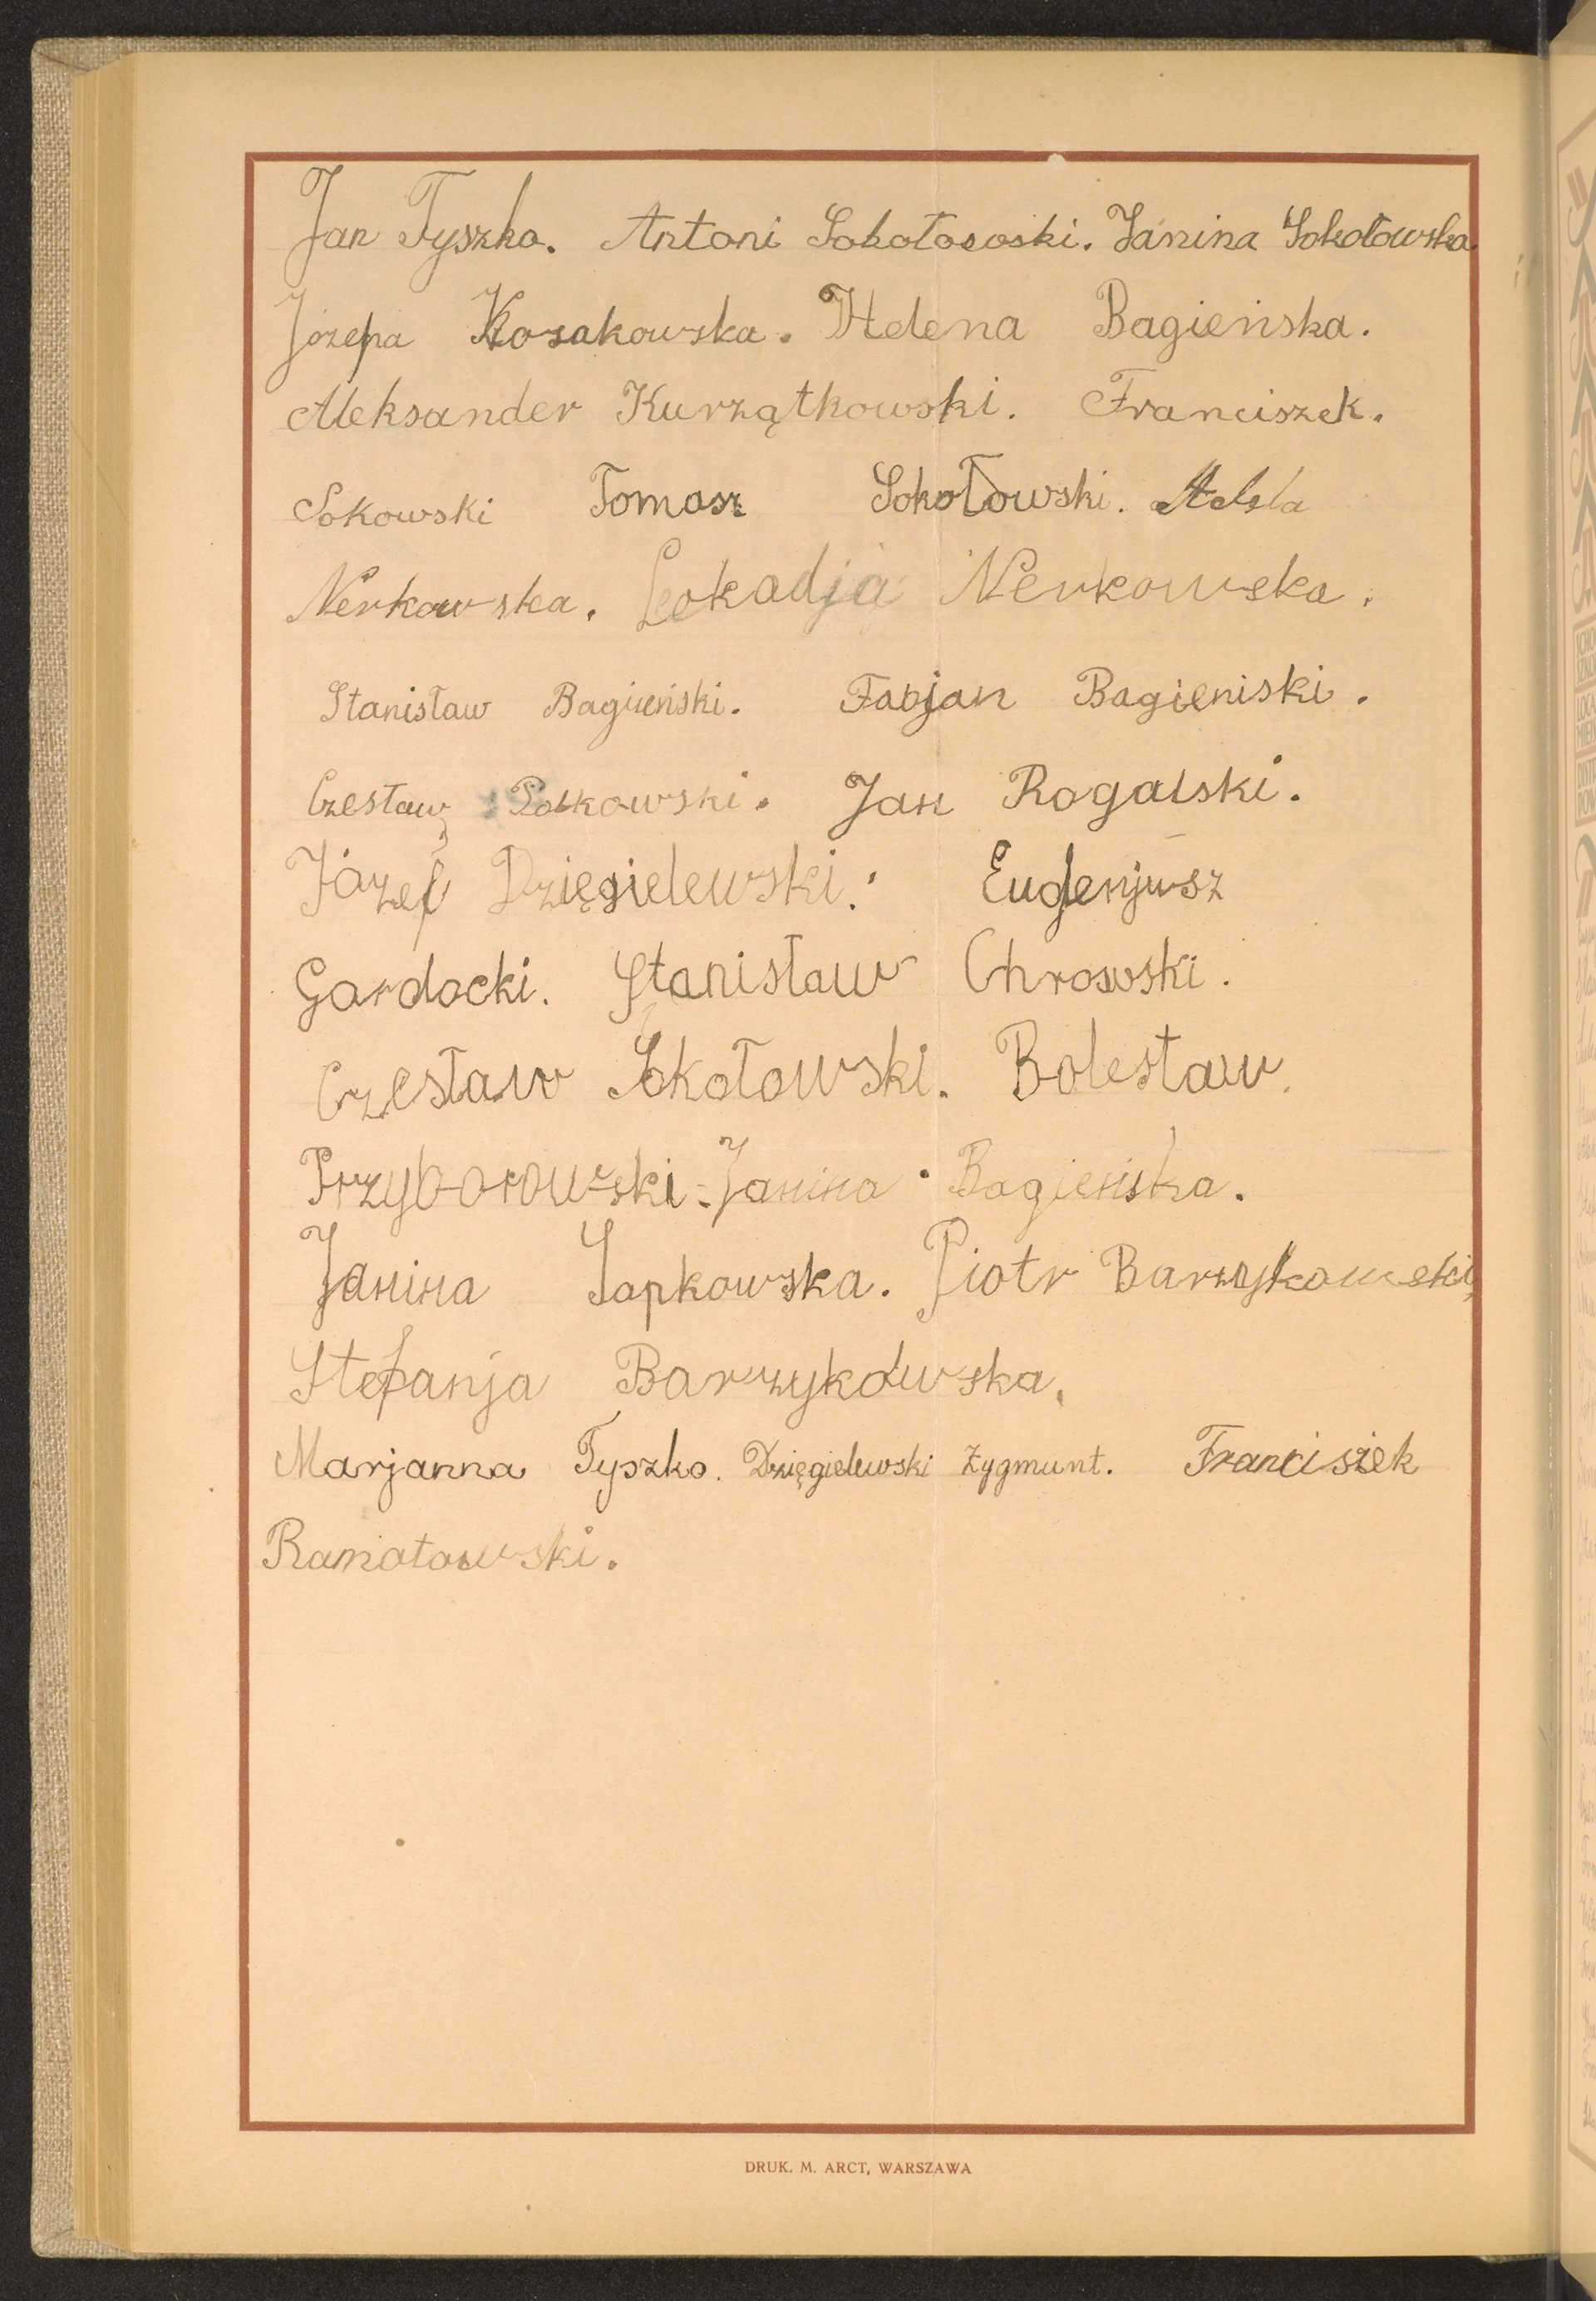 Jan Tyszka. Antoni Sokołowski. Janina Sokołowska
Józefa Kosakowska. Helena Bagieńska.
Aleksander Kurzątkowski. Franciszek.
Sokowski Tomasz Sokołowski. Adela
Nerkowska. Leokadja Nerkowska.
Stanisław Bagieński. Fabjan Bagieniski.
Czesław Polkowski. Jan Rogalski.
Józef Dzięgielewski. Eugenjusz
Gardocki. Stanisław Chrowski.
Czesław Sokołowski. Bolesław.
Przyborowski. Janina Bagieńska.
Janina Sapkowska. Piotr Barzykowski,
Stefanja Barzykowska.
Marjanna Tyszko. Dzięgielewski Zygmunt. Franciszek
Ramotowski.
DRUK. M. ARCT, WARSZAWA